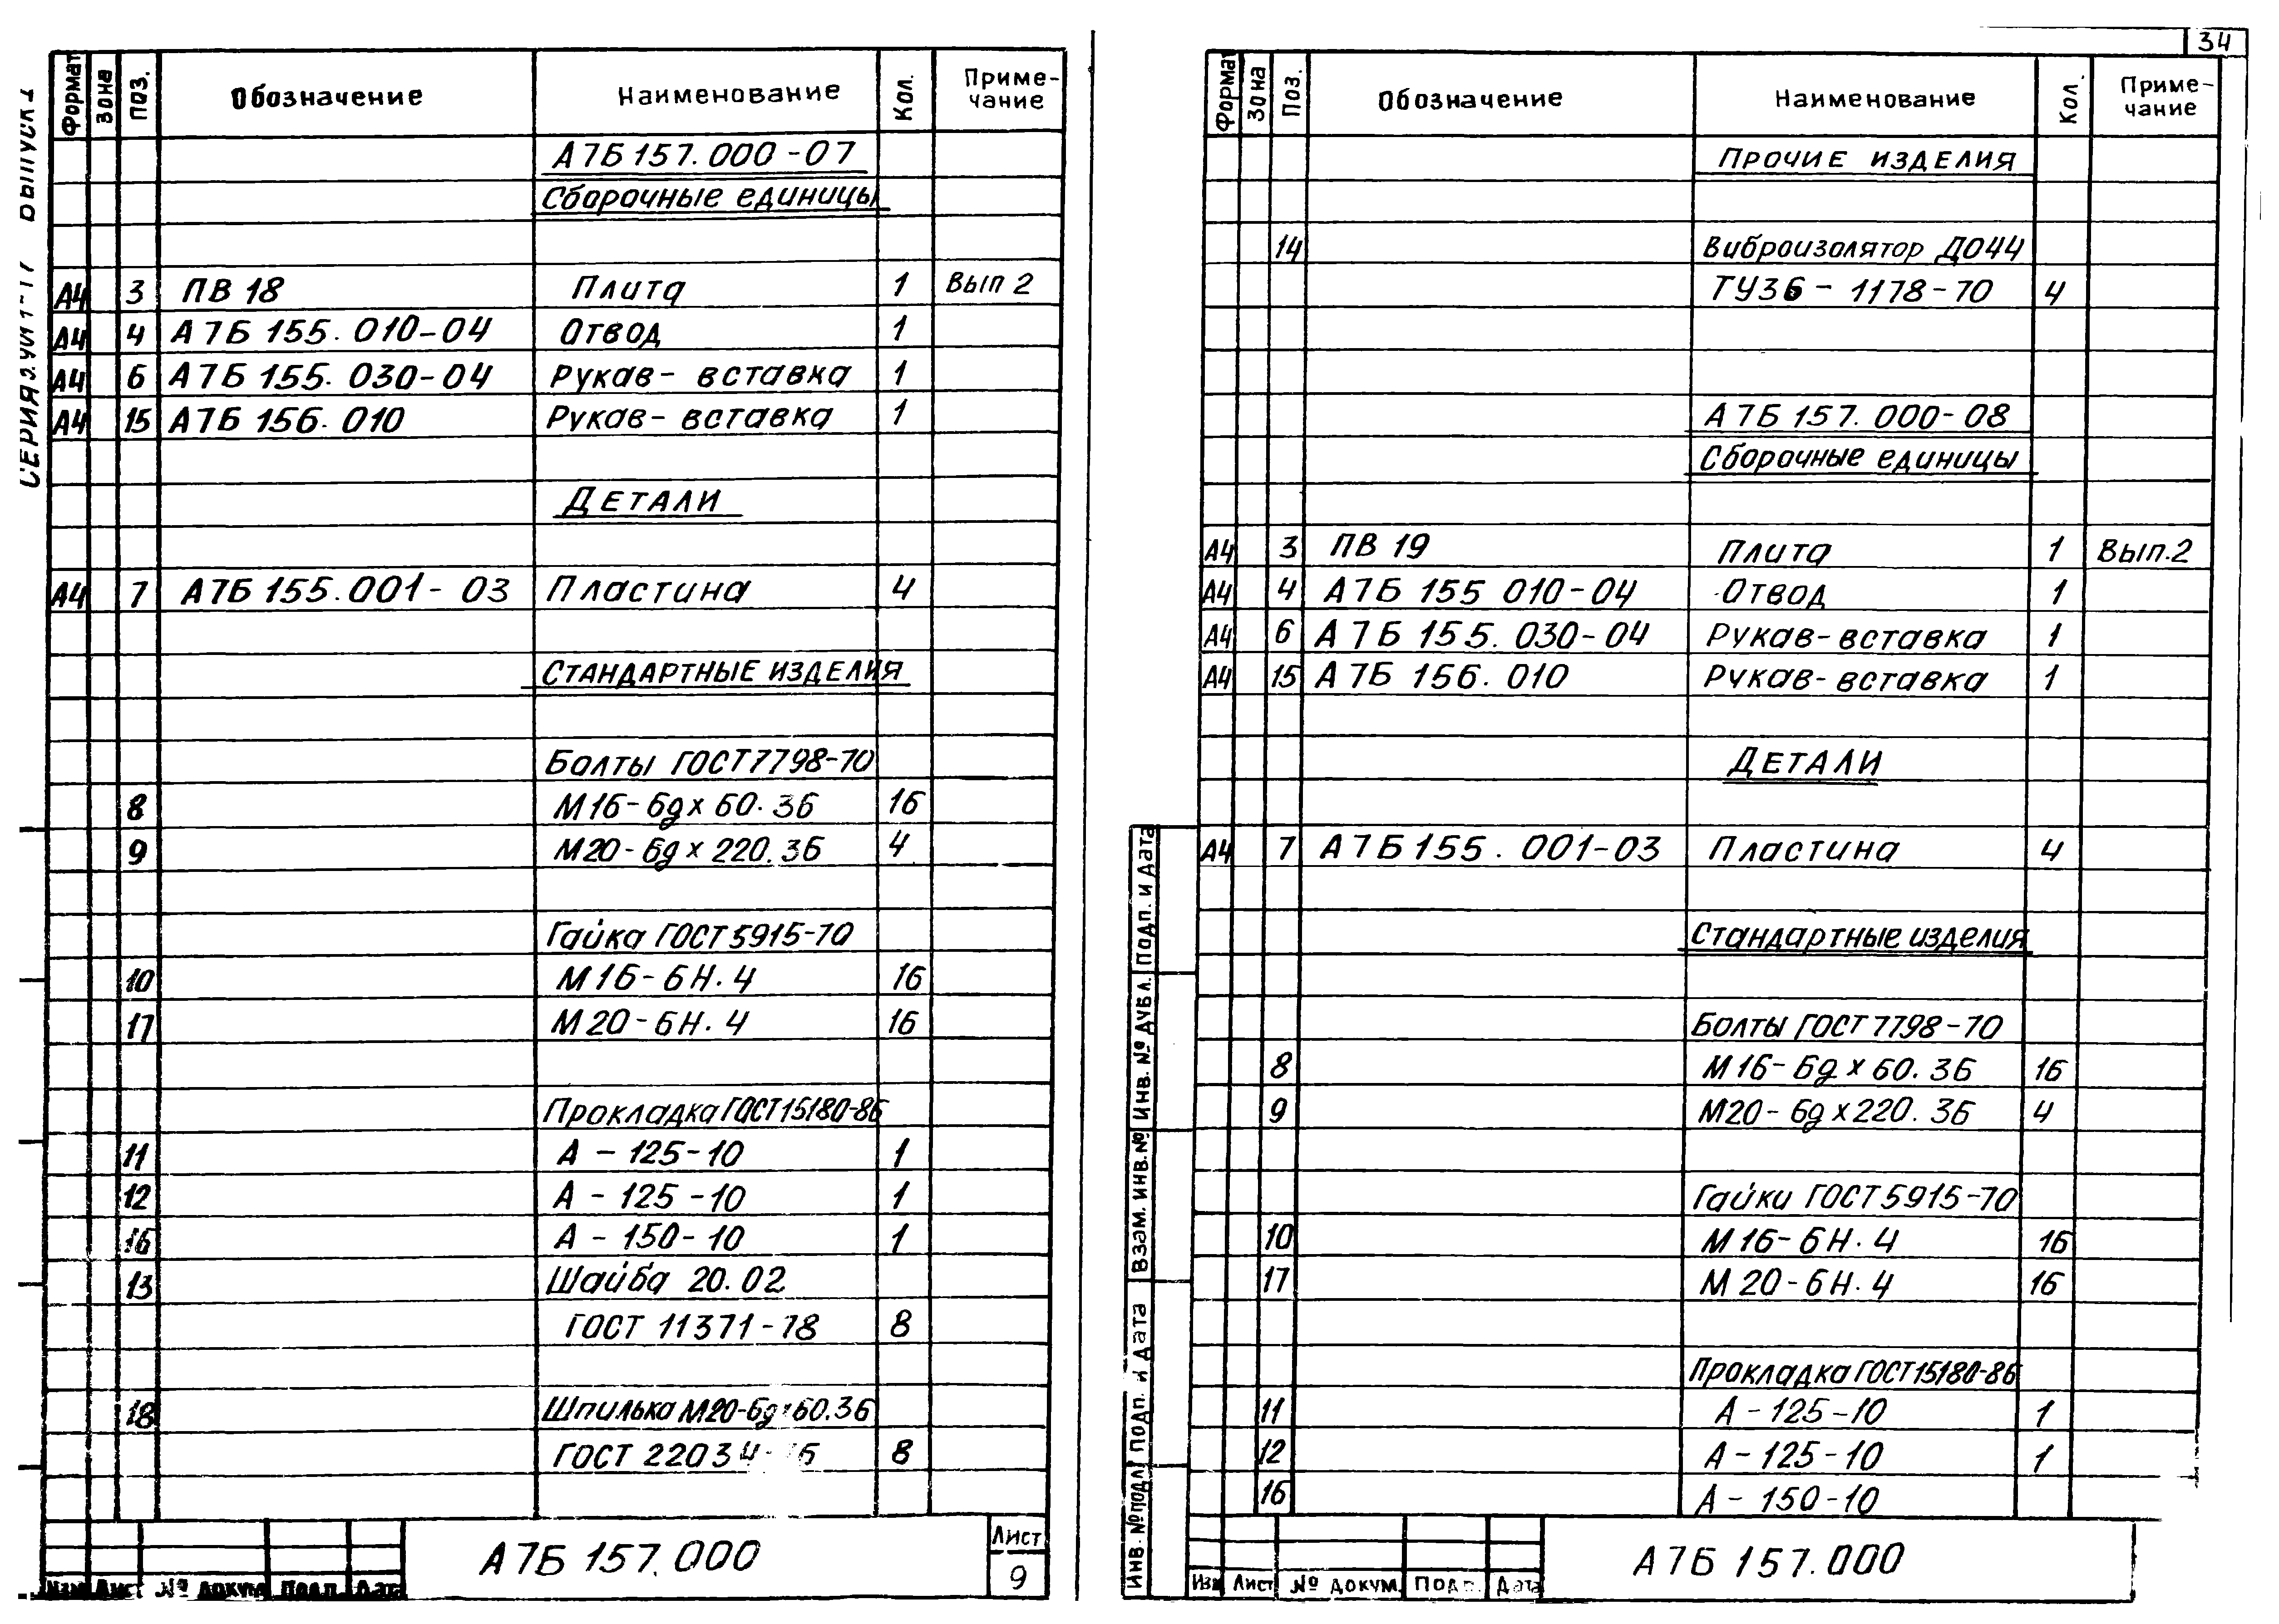 34
Формат Зона Поз. Обозначение Наименование Кол. Приме-
чание
А7Б157.000-07
Сборочные единицы
А4 3 ПВ 18 Плита 1 Вып 2
А4 4 А7Б 155.010-04 Отвод 1
А4 6 А7Б 155.030-04 Рукав- вставка 1
А4 15 А7Б 156.010 Рукав- вставка 1
ДЕТАЛИ
А4 7 А7Б 155.001- 03 Пластина 4
СТАНДАРТНЫЕ ИЗДЕЛИЯ
Болты ГОСТ7798-70
8 М16-6gх60.36 16
9 М20-6gх220.36 4
Гайка ГОСТ5915-70
10 М16-6Н.4 16
17 М20-6Н.4 16
Прокладка ГОСТ15180-86
11 А - 125-10 1
12 А - 125-10 1
16 А - 150-10 1
13 Шайба 20.02
ГОСТ 11371-78 8
18 Шпилька М20-6gх60.36
ГОСТ 22034- 8
А7Б 157.000
Лист
9
Изм Лист № докум Подп. Дат
Формат Зона Поз. Обозначение Наименование Кол. Приме-
чание
ПРОЧИЕ ИЗДЕЛИЯ
14 Виброизолятор ДО44
ТУ36-1178-70 4
А7Б 157.000-08
Сборочные единицы
А4 3 ПВ 19 Плита 1 Вып.2
А4 4 А7Б 155 010-04 Отвод 1
А4 6 А7Б 155.030-04 Рукав-вставка 1
А4 15 А7Б 156.010 Рукав-вставка 1
ДЕТАЛИ
А4 7 А7Б155.001-03 Пластина 4
Стандартные изделия
Болты ГОСТ7798-70
8 М16-6gх60.36 16
9 М20-6gх220.36 4
Гайки ГОСТ5915-70
10 М16-6Н.4 16
17 М20-6Н.4 16
Прокладка ГОСТ15180-86
11 А-125-10 1
12 А-125-10 1
16 А-150-10
А7Б 157.000
Изм Лист № докум. Подп. Дата
Инв. № подл Подп. и дата Взам. инв. № Инв. № дубл. Подп. и дата